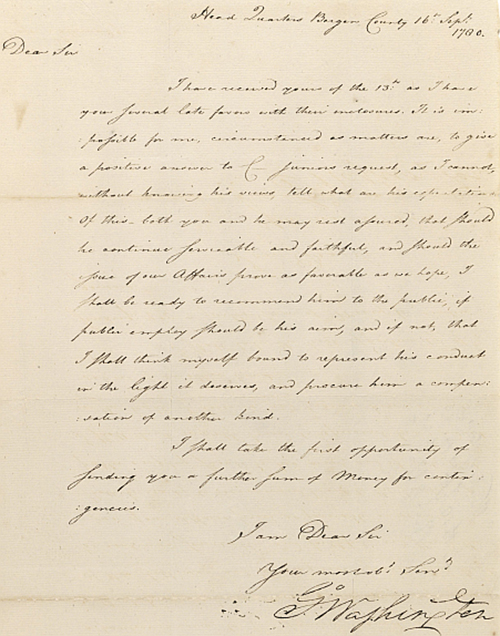 Head Quarters Bergen County 16th Sepr.
1780.
Dear Sir
I have received yours of the 13th as I have
your several late favors with their enclosures. It is im-
:possible for me, circumstanced as matters are, to give
a positive answer to C juniors request, as I cannot,
without knowing his views, tell what are his expectations
Of this- both you and he may rest assured, that should
he continue serviceable and faithful, and should the
issue of our Affairs prove as favorable as we hope, I
shall be ready to recommend him to the public, if
public employ should be his aim, and if not, that
I shall think myself bound to represent his conduct
in the light it deserves, and procure him a compen-
:sation of another kind.
I shall take the first opportunity of
sending you a further sum of Money for contin-
:gencies.
I am Dear Sir
Your most obt Servt
Go: Washington